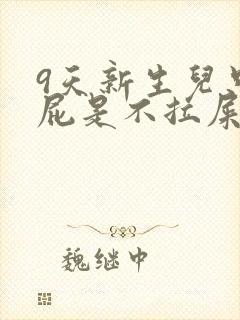 9天新生兒
屁是不拉屎
魏继中